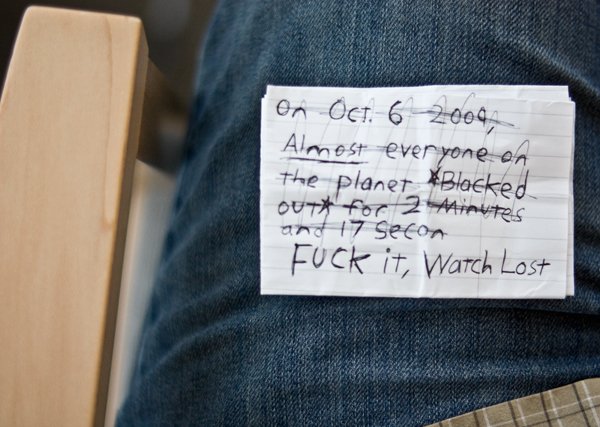 On Oct. 6 2009,
Almost everyone on
the planet *Blacked
out* for 2 Minutes
and 17 secon
FUCK it, Watch Lost